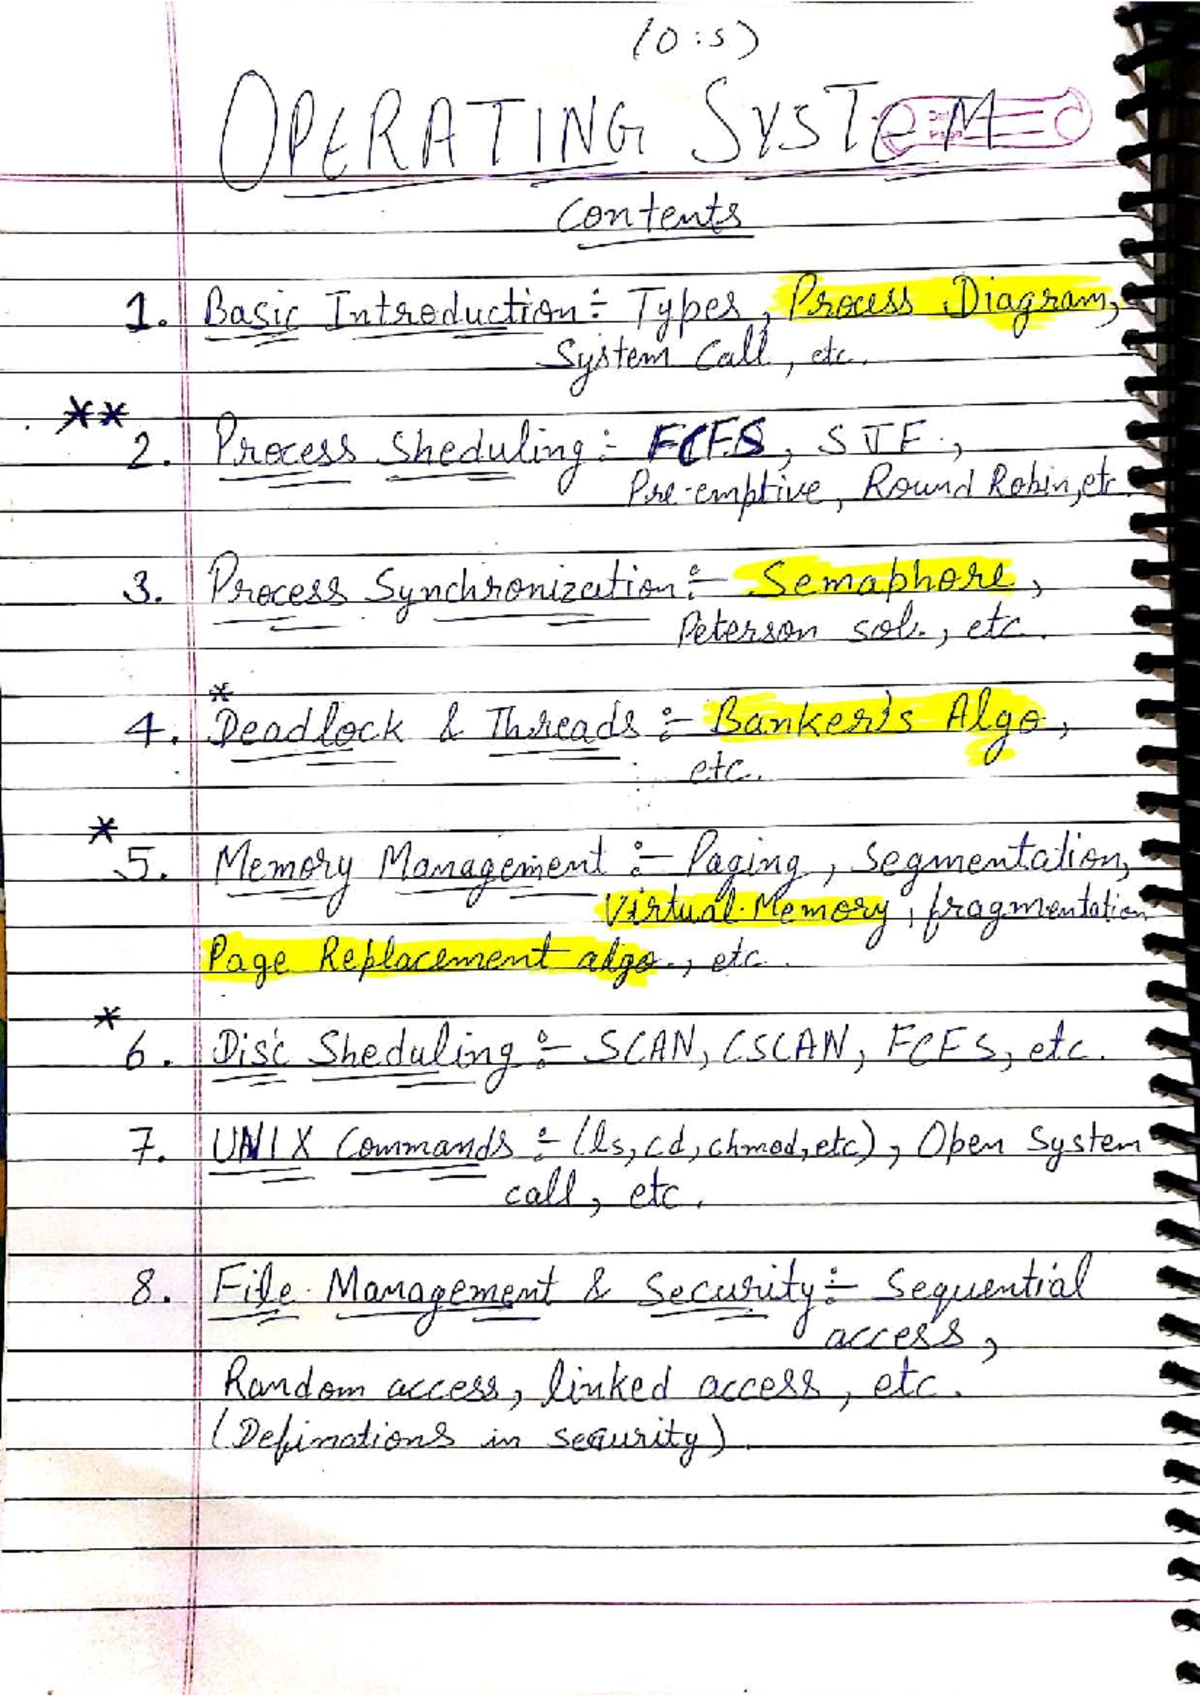 (O:S)
OPERATING SYSTEM
Contents
1. Basic Introduction:- Types, Process Diagram,
System Call, etc.
** 2. Process Sheduling:- FCFS, SJF,
Pre-emptive, Round Robin, etc.
3. Process Synchronization:- Semaphore,
Peterson sol., etc.
*
4. Deadlock & Threads:- Banker's Algo,
etc.
* 5. Memory Management:- Paging, Segmentation,
Virtual Memory, fragmentation
Page Replacement algo., etc.
* 6. Disc Sheduling:- SCAN, CSCAN, FCFS, etc.
7. UNIX Commands:- (ls, cd, chmod, etc), Open System
call, etc.
8. File Management & Security:- Sequential
access,
Random access, linked access, etc.
(Definations in security).